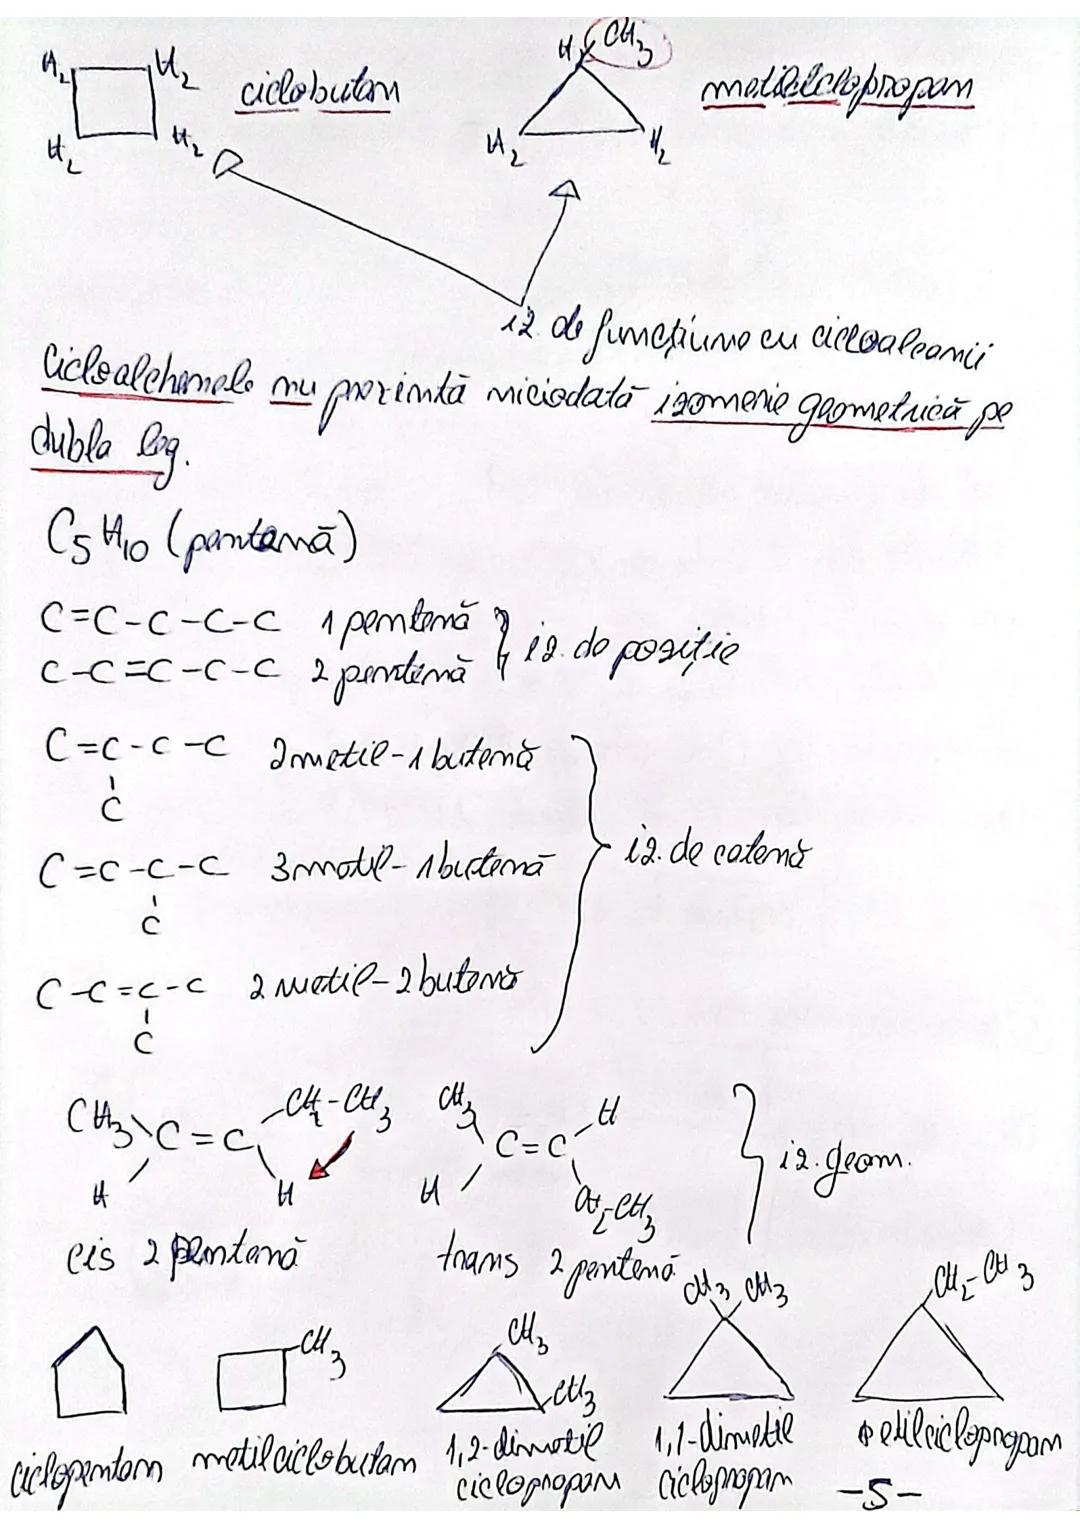 H₂ H₂ ciclobutan H CH₃ metilciclopropan
H₂ H₂ H₂ H₂
iz. de funcțiune cu cicloalcanii
Cicloalchenele nu prezintă niciodată izomerie geometrică pe
dubla leg.
C₅H₁₀ (pentenă)
C=C-C-C-C 1 pentenă
C-C=C-C-C 2 pentenă
iz. de poziție
C=C-C-C 2 metil-1 butenă
C
C=C-C-C 3 metil-1 butenă
C
iz. de catenă
C-C=C-C 2 metil-2 butenă
C
CH₃ C=C CH₂-CH₃ H H
CH₃ C=C H H CH₂-CH₃
iz. geom.
cis 2 pentenă trans 2 pentenă
CH₃ CH₃ CH₃ CH₃ CH₃ CH₂-CH₃
ciclopentan metilciclobutan 1,2-dimetil ciclopropan 1,1-dimetil ciclopropan etilciclopropan
-5-